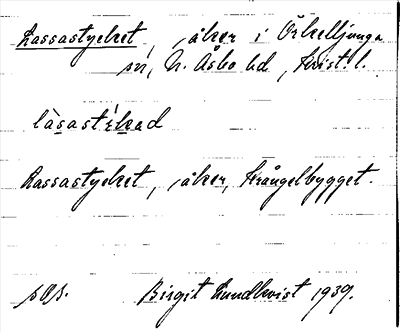 Lassastycket, åker i Örkelljunga
sn, N. Åsbo hd, Krist. l.
làsastikad
Lassastycket, åker, Krångelbygget.
Birgit Lundkvist 1939.